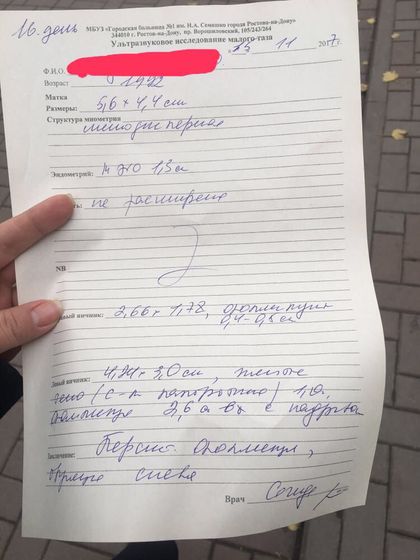 16. день
МБУЗ «Городская больница №1 им. Н.А. Семашко города Ростова-на-Дону»
344010 г. Ростов-на-Дону, пр. Ворошиловский, 105/243/264
Ультразвуковое исследование малого таза
11 2017г.
Ф.И.О.
Возраст 1992
Матка
Размеры: 5,6 × 4,4 см
Структура миометрия
Эндометрий: М ЭХО 1,3 см
не расширена
NB
яичник: 2,66 × 1,78, фолликулы
0,4-0,5 см
Левый яичник: 4,24 × 3,0 см, желтое
тело 1,0,
2,6 см
Заключение: Персист. фолликул,
слева
Врач